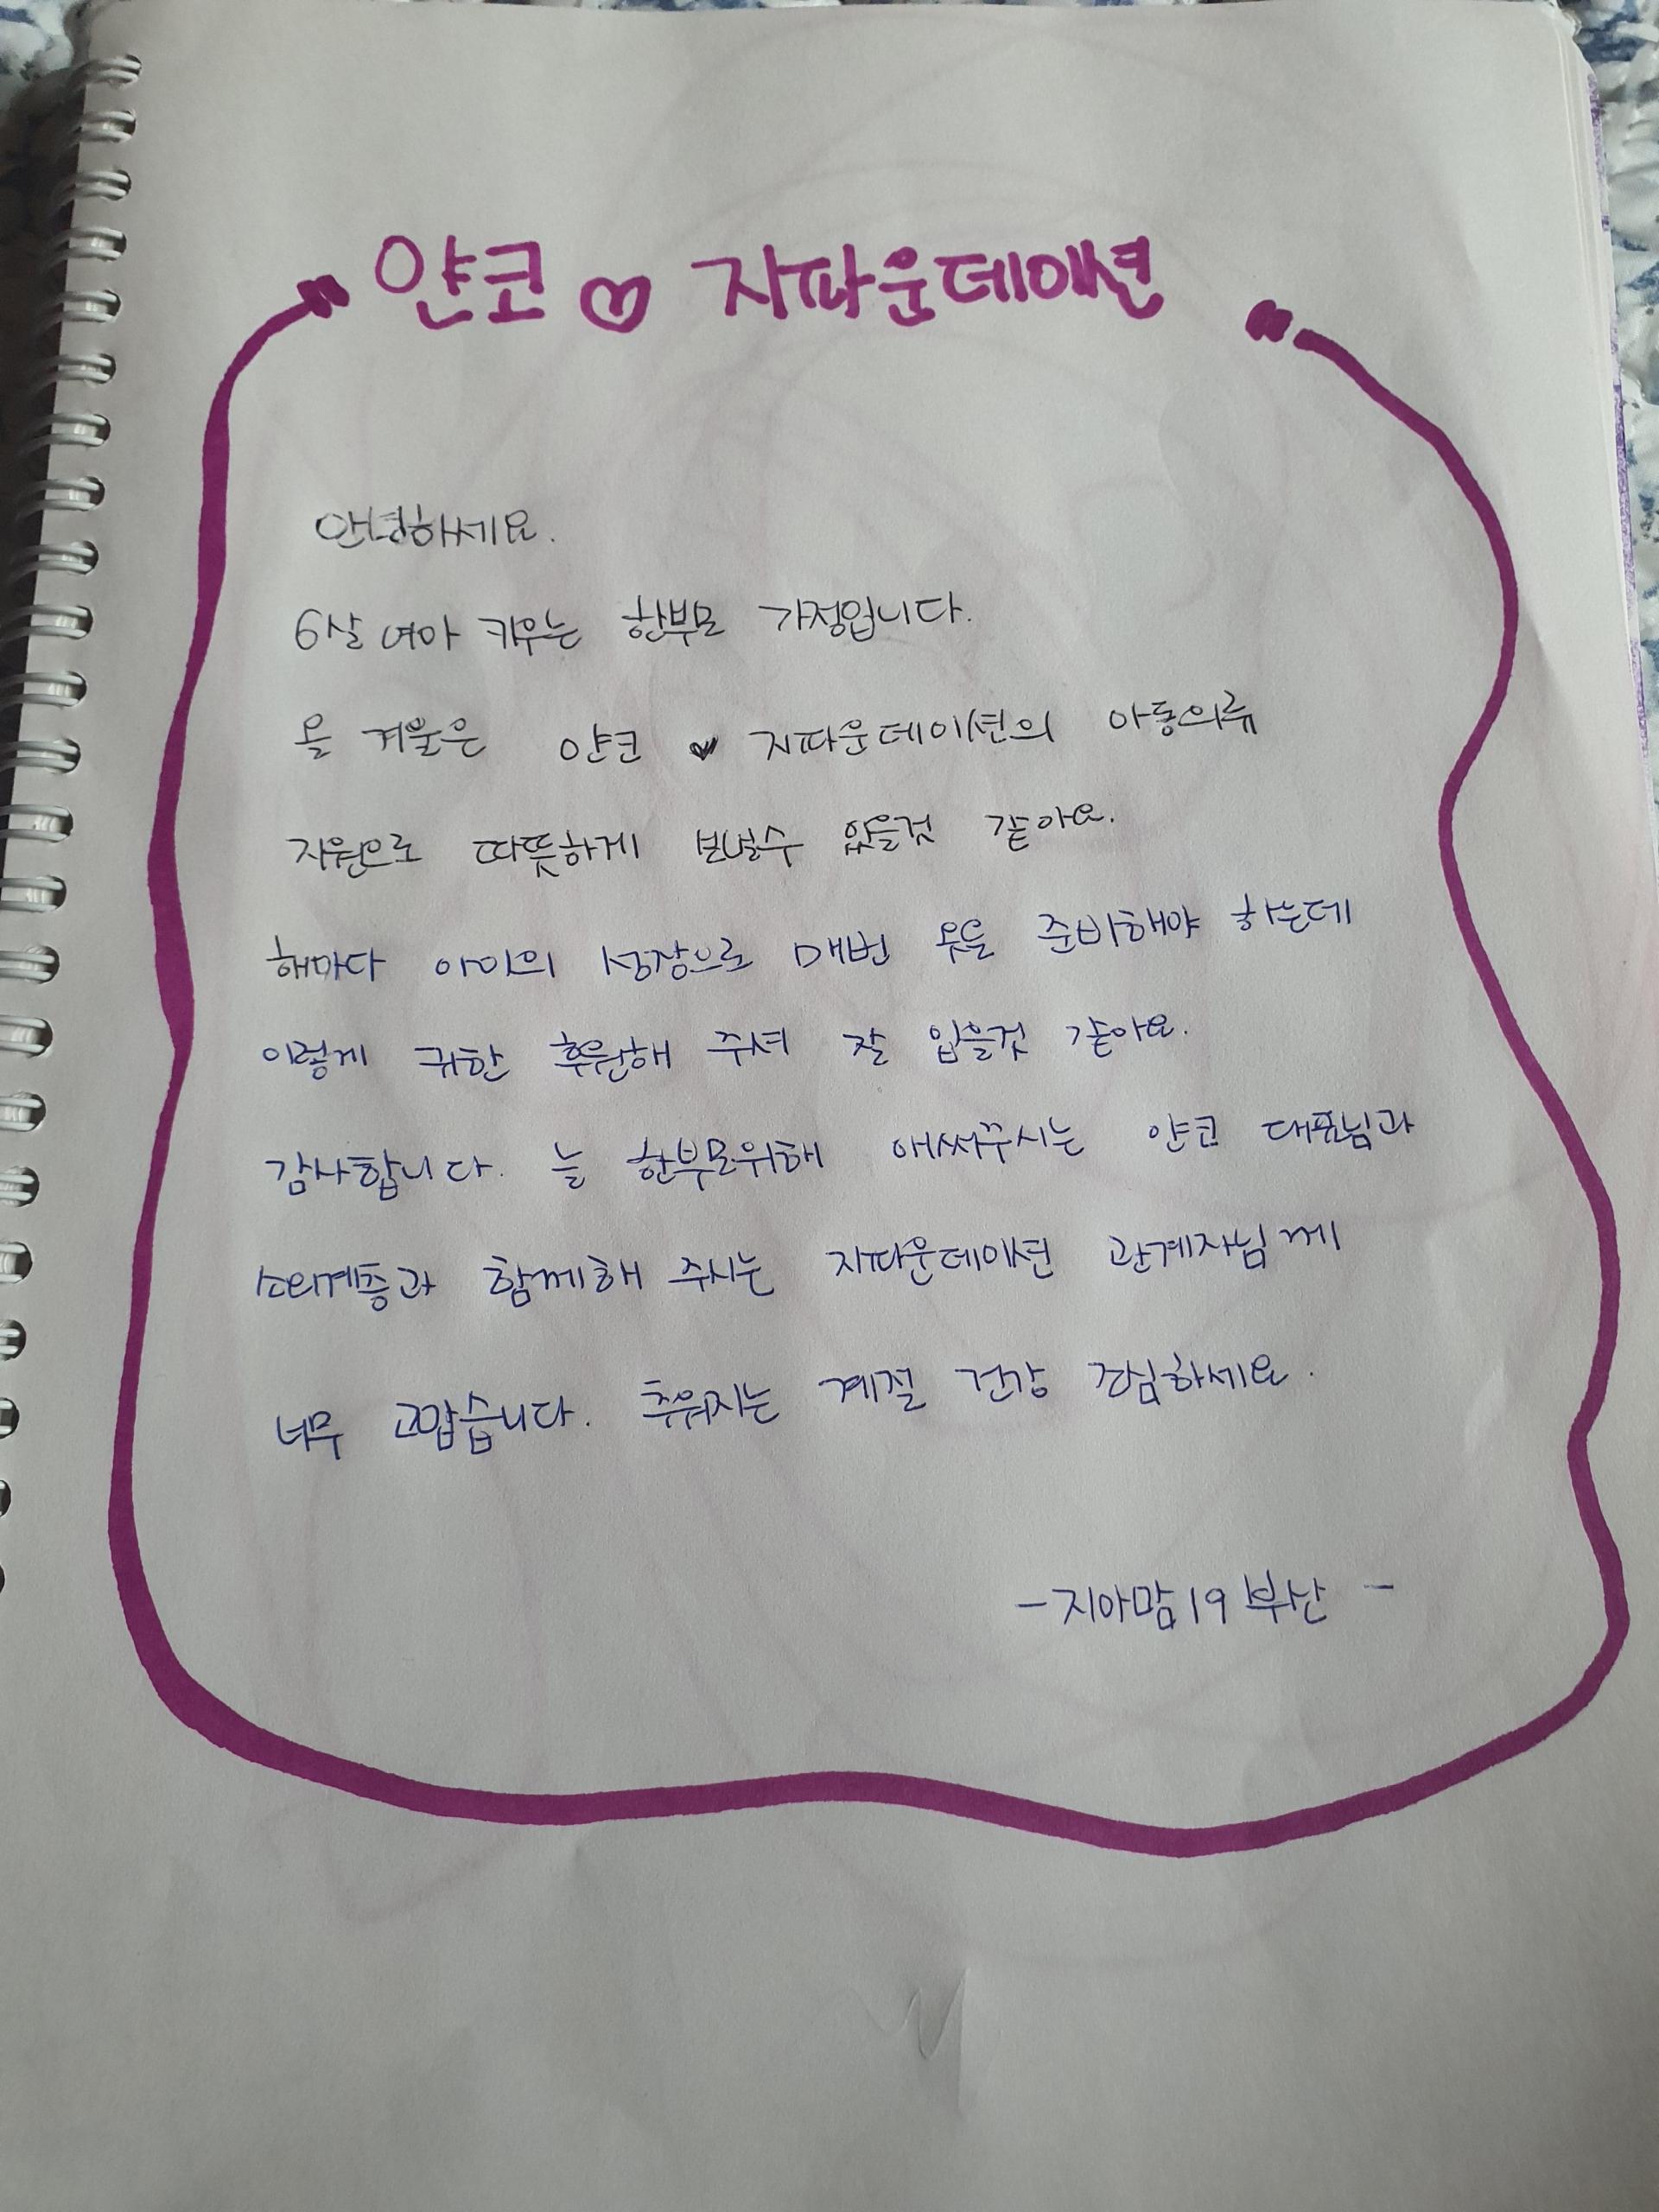 얀코 ♡ 지파운데이션
안녕하세요.
6살 여아 키우는 한부모 가정입니다.
올 겨울은 얀코 ♥ 지파운데이션의 아동의류
지원으로 따뜻하게 보낼수 있을것 같아요.
해마다 아이의 성장으로 매번 옷을 준비해야 하는데
이렇게 귀한 후원해 주셔 잘 입을것 같아요.
감사합니다. 늘 한부모위해 애써주시는 얀코 대표님과
소외계층과 함께해 주시는 지파운데이션 관계자님께
너무 고맙습니다. 추워지는 계절 건강 조심하세요.
- 지아맘19 부산 -